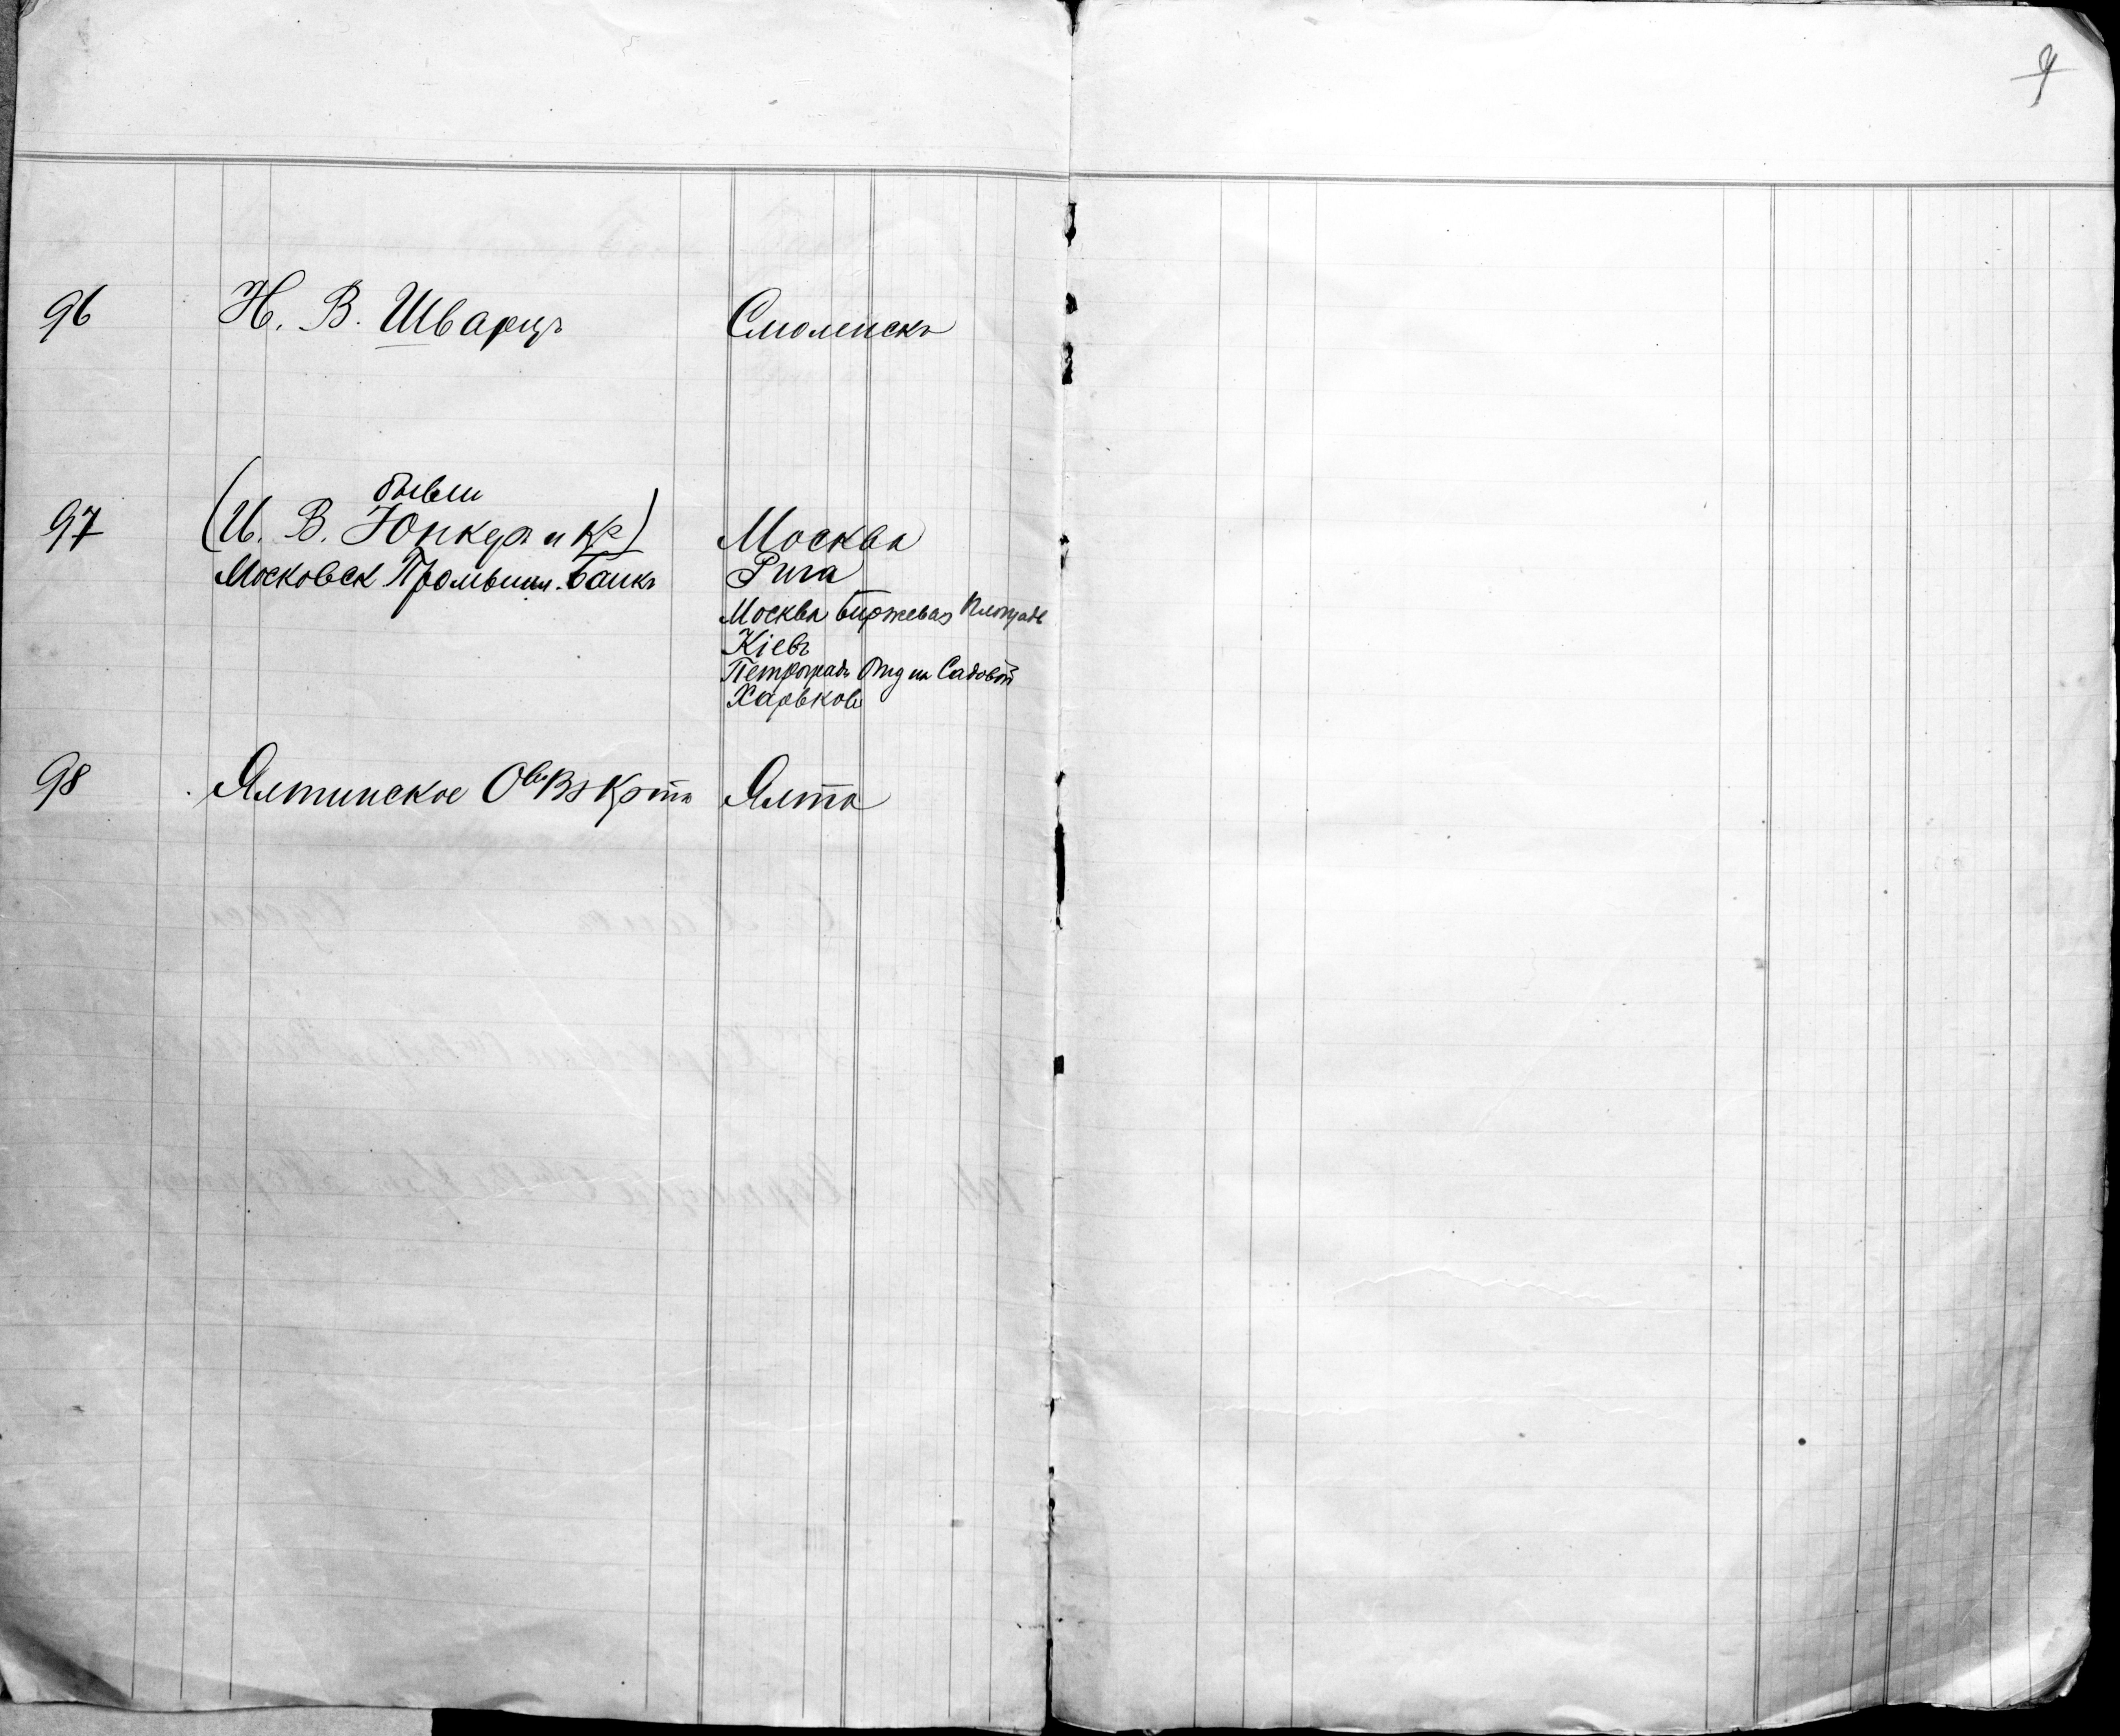 9
96 Н. В. Шварцъ Смоленскъ
бывш
97 (И. В. Юнкеръ и Кº) Москва
Московск Промышл. Банкъ Рига
Москва Биржевая Площадь
Кіевъ
Петроградъ Отд на Садовой
Харьковъ
98 Ялтинское Ово Вз Кр-та Ялта